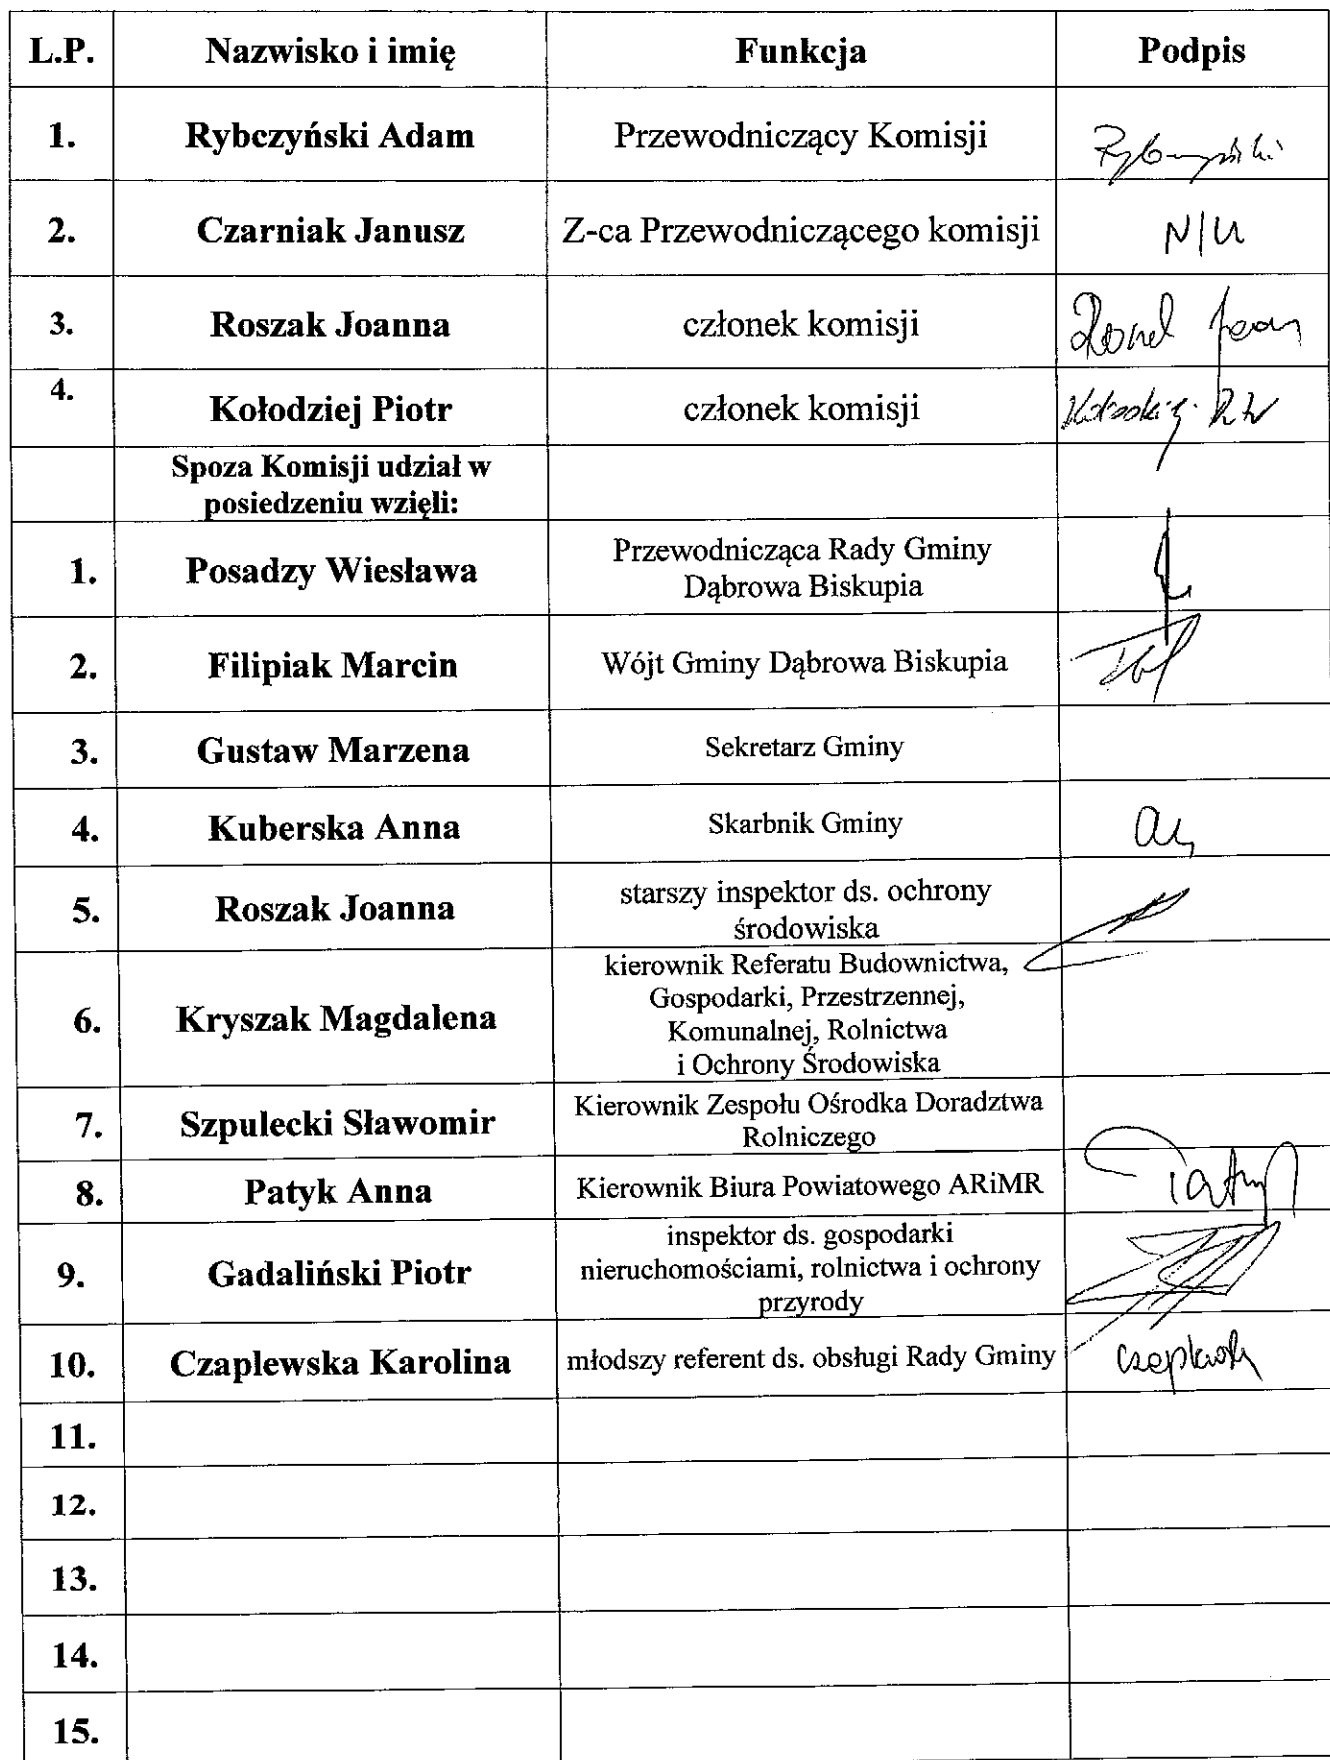 L.P. Nazwisko i imię Funkcja Podpis
1. Rybczyński Adam Przewodniczący Komisji
2. Czarniak Janusz Z-ca Przewodniczącego komisji N/U
3. Roszak Joanna członek komisji
4. Kołodziej Piotr członek komisji
Spoza Komisji udział w
posiedzeniu wzięli:
1. Posadzy Wiesława Przewodnicząca Rady Gminy
Dąbrowa Biskupia
2. Filipiak Marcin Wójt Gminy Dąbrowa Biskupia
3. Gustaw Marzena Sekretarz Gminy
4. Kuberska Anna Skarbnik Gminy
5. Roszak Joanna starszy inspektor ds. ochrony
środowiska
6. Kryszak Magdalena kierownik Referatu Budownictwa,
Gospodarki, Przestrzennej,
Komunalnej, Rolnictwa
i Ochrony Środowiska
7. Szpulecki Sławomir Kierownik Zespołu Ośrodka Doradztwa
Rolniczego
8. Patyk Anna Kierownik Biura Powiatowego ARiMR
9. Gadaliński Piotr inspektor ds. gospodarki
nieruchomościami, rolnictwa i ochrony
przyrody
10. Czaplewska Karolina młodszy referent ds. obsługi Rady Gminy
11.
12.
13.
14.
15.